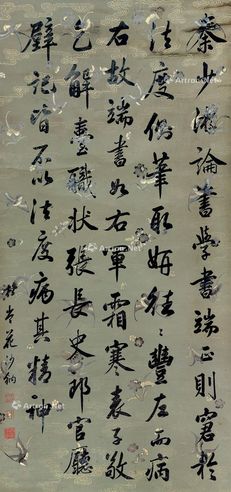 秦少游論書學書端正則窘於
法度側筆取妍往〻豐左而病
右故端書如右軍霜寒表子敬
乞解臺職狀張長史郎官廳
壁記皆不以法度病其精神